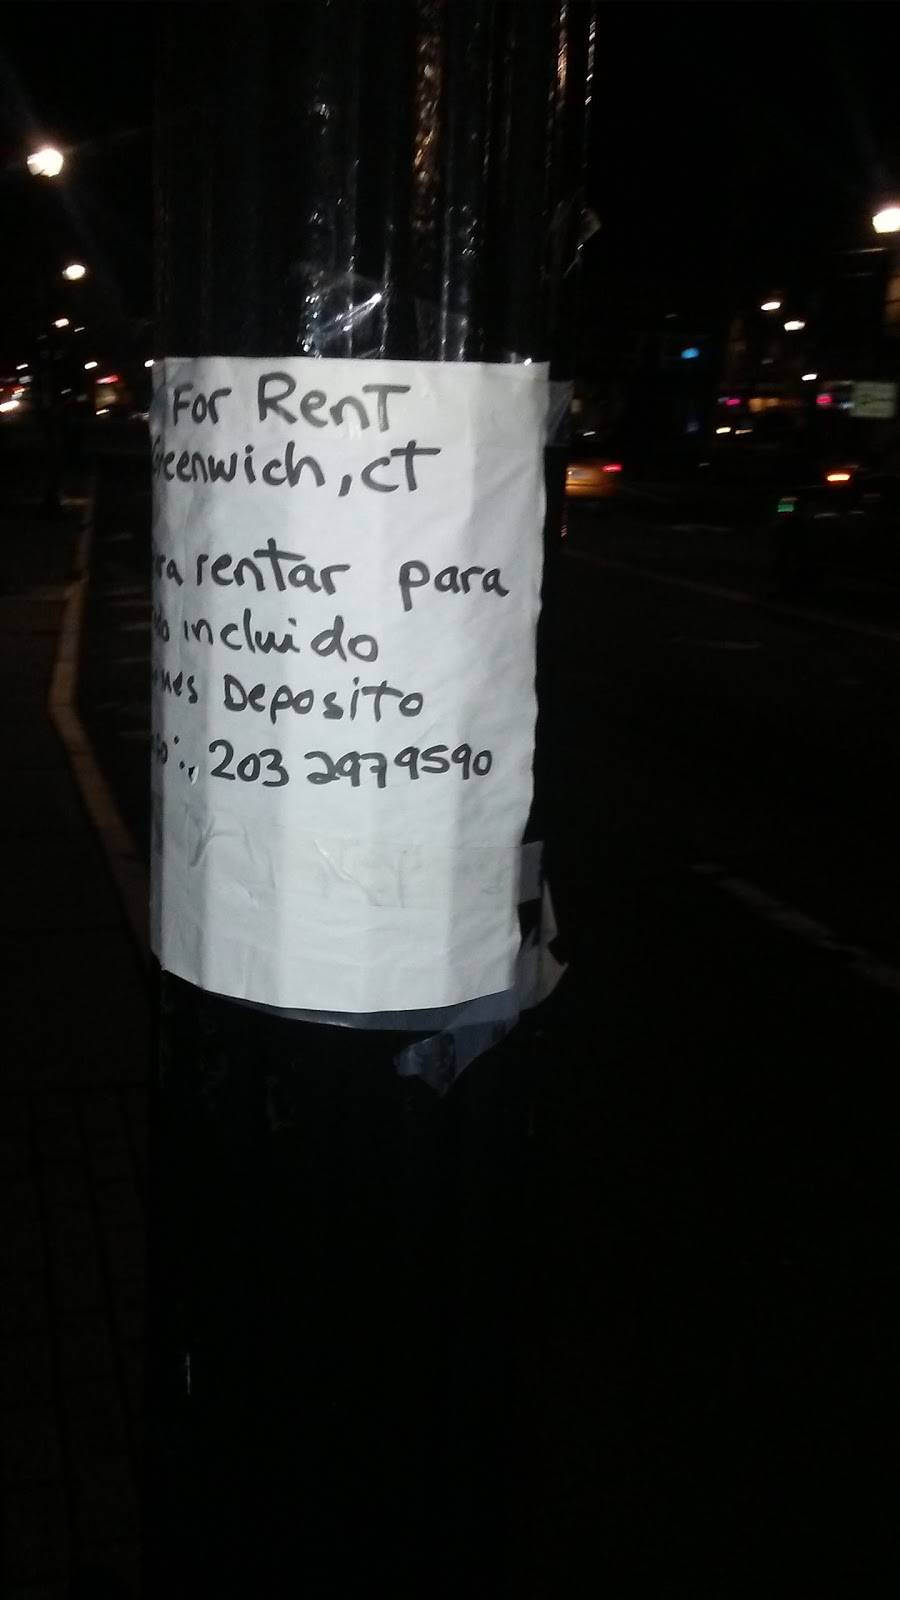 For RenT
Greenwich, CT
rentar para
incluido
Deposito
203 2979590